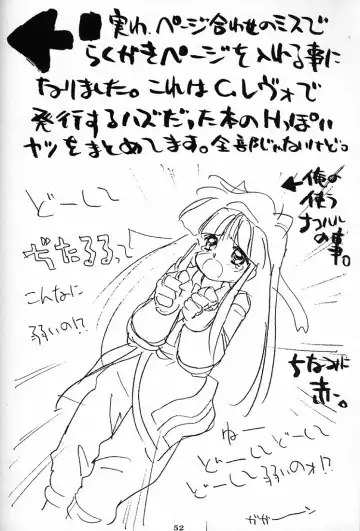 実わ、ページ合わせのミスで
らくがきページを入れる事に
なりました。これはC.レヴォで
発行するハズだった本のHっぽい
ヤツをまとめてます。全部じゃないけど。
俺の
使う
の事。
ちなみに
赤。
どーして
ぢたるるって
こんなに
弱いの!?
ねー
どーしてどーして
どーして弱いのォ!?
ガガーン
52